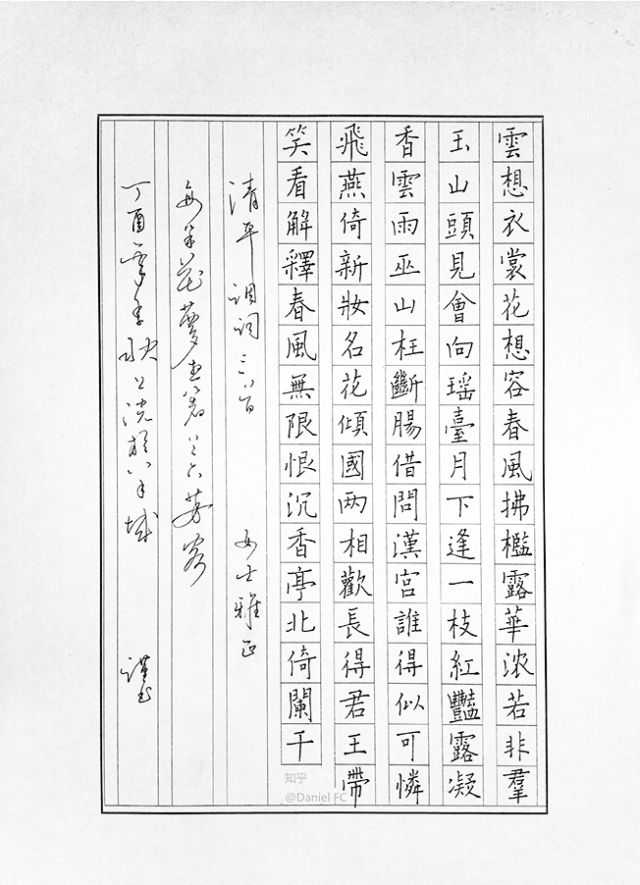 雲想衣裳花想容春風拂檻露華浓若非羣
玉山頭見會向瑶臺月下逢一枝紅豔露凝
香雲雨巫山枉斷腸借問漢宮誰得似可憐
飛燕倚新妝名花傾國两相歡長得君王帶
笑看解釋春風無限恨沉香亭北倚闌干
清平調詞三首 女士雅正
丁酉 謹書
知乎
@Daniel FC